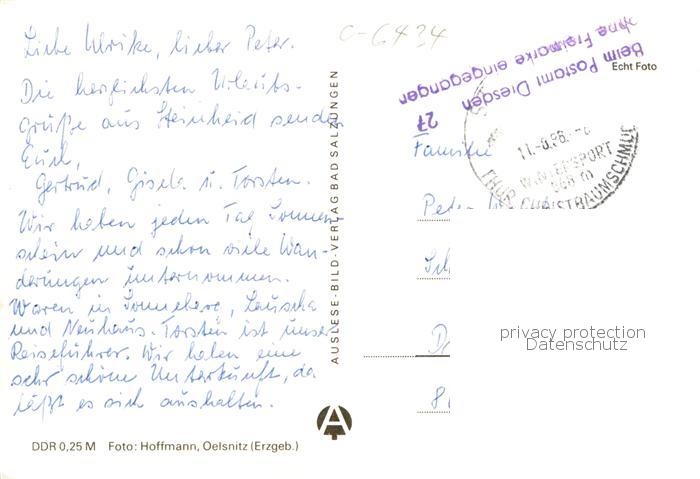 Liebe Ulrike, lieber Peter.
Die herzlichsten Urlaubs-
grüße aus Steinheid senden
Euch,
Gertrud, Gisela u. Torsten.
Wir haben jeden Tag Sonnen
schein und schon viele Wan-
derungen unternommen.
Waren in Sonneberg, Lauscha
und Neuhaus. Torsten ist unser
Reiseführer. Wir haben eine
sehr schöne Unterkunft, da
läßt es sich aushalten.
DDR 0,25 M Foto: Hoffmann, Oelsnitz (Erzgeb.)
AUSLESE-BILD-VERLAG BAD SALZUNGEN
A
C-6434
Beim Postamt Dresden 27
ohne Freimarke eingegangen
Echt Foto
THÜR
WINTERSPORT
CHRISTBAUMSCHMUCK
Familie
Peter
privacy protection
Datenschutz